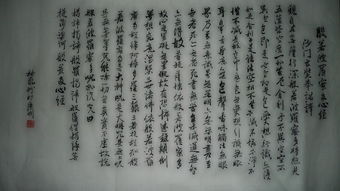 般若波羅蜜多心經
沙門玄奘奉詔譯
觀自在菩薩行深般若波羅蜜多時照見
五蘊皆空度一切苦厄舍利子色不異空空不
異色色即是空空即是色受想行識亦復
如是舍利子是諸法空相不生不滅不垢不淨不
增不減是故空中無色無受想行識無眼
耳鼻舌身意無色聲香味觸法無眼
界乃至無意識界無無明亦無無明盡乃至
無老死亦無老死盡無苦集滅道無智亦
無得以無所得故菩提薩埵依般若波羅蜜多
故心無罣礙無罣礙故無有恐怖遠離顛倒
夢想究竟涅槃三世諸佛依般若波羅
蜜多故得阿耨多羅三藐三菩提故知般
若波羅蜜多是大神咒是大明咒是無上咒
是無等等咒能除一切苦真實不虛故說
般若波羅蜜多咒即說咒曰
揭諦揭諦波羅揭諦波羅僧揭諦菩
提薩婆訶般若多心經